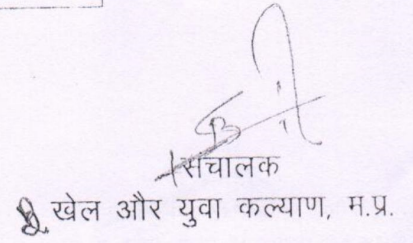 संचालक
खेल और युवा कल्याण, म.प्र.